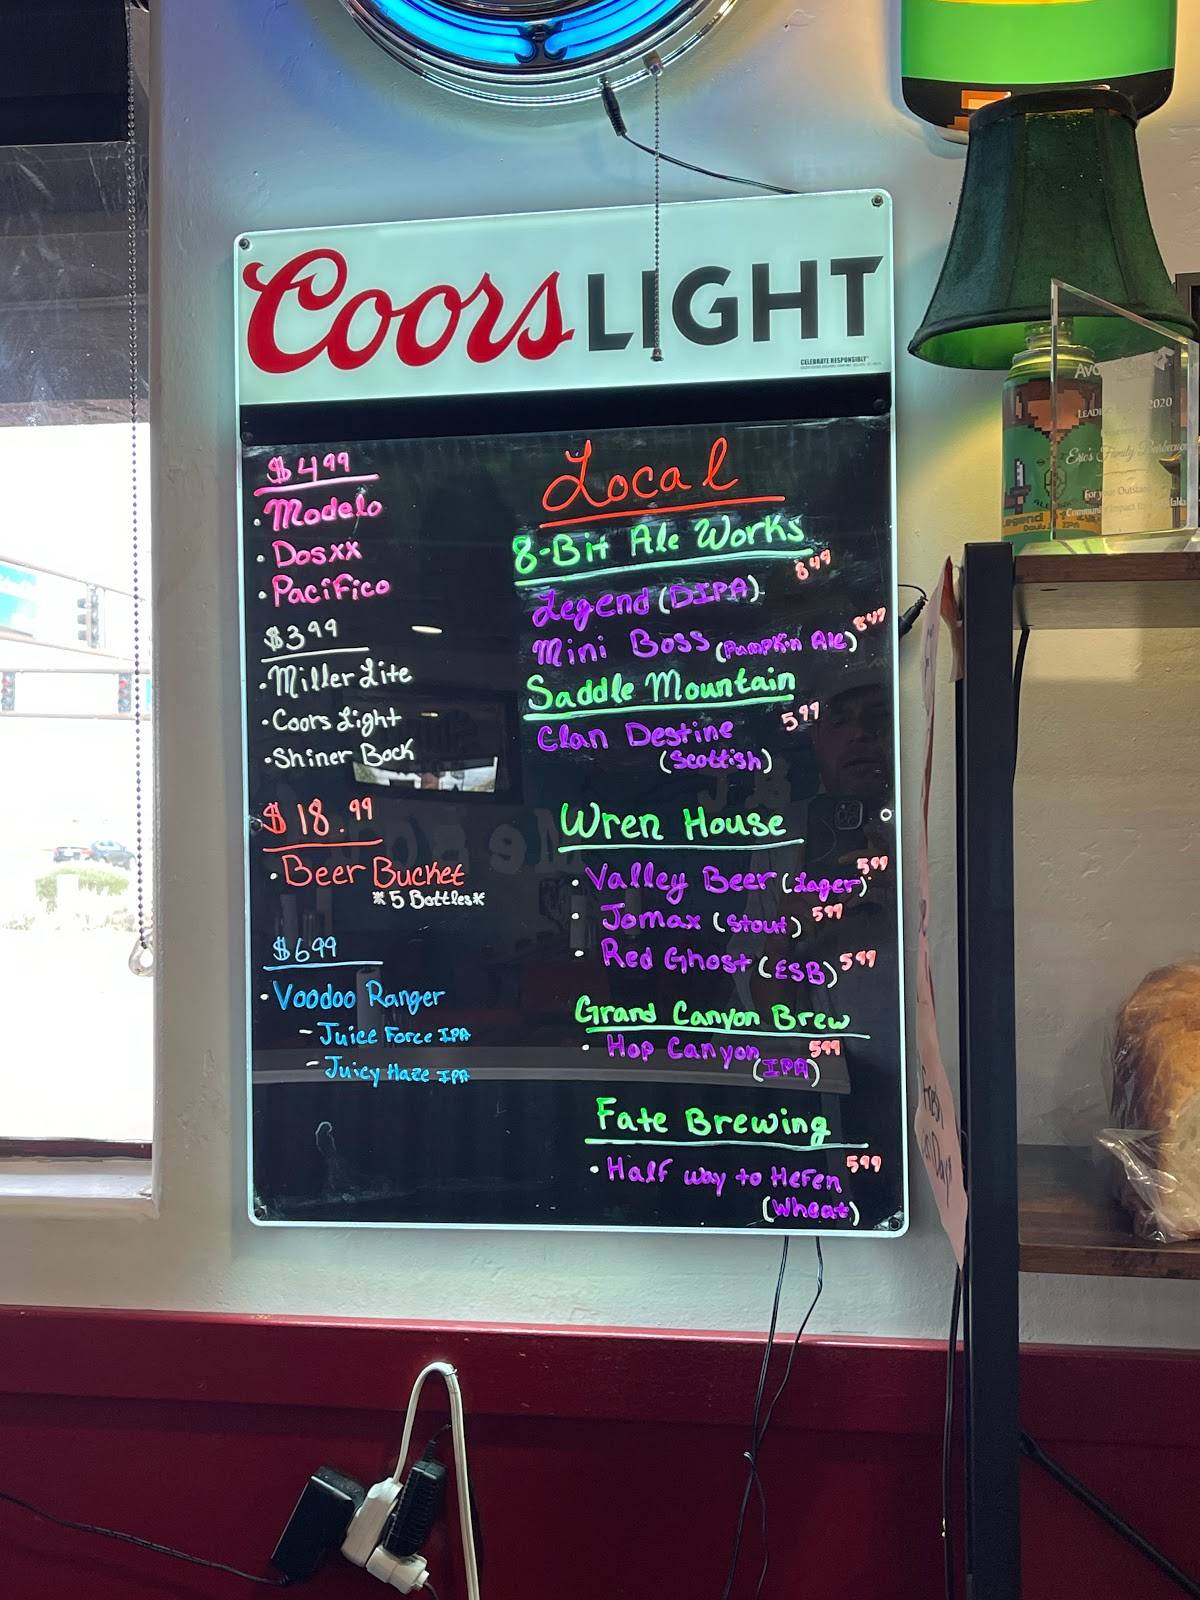 Coors LIGHT
CELEBRATE RESPONSIBLY
$4.99
• Modelo
• Dosxx
• Pacifico
$3.99
• Miller Lite
• Coors Light
• Shiner Bock
$18.99
• Beer Bucket
*5 Bottles*
$6.99
• Voodoo Ranger
- Juice Force IPA
- Juicy Haze IPA
Local
8-Bit Ale Works
8.49
Legend (DIPA)
Mini Boss (Pumpkin Ale) 8.49
Saddle Mountain
Clan Destine 5.99
(Scottish)
Wren House
• Valley Beer (Lager) 5.99
• Jomax (Stout) 5.99
• Red Ghost (ESB) 5.99
Grand Canyon Brew
• Hop Canyon 5.99
(IPA)
Fate Brewing
• Half way to Hefen 5.99
(Wheat)
2020
Eric's Family Barbecue
For your
Community Impact